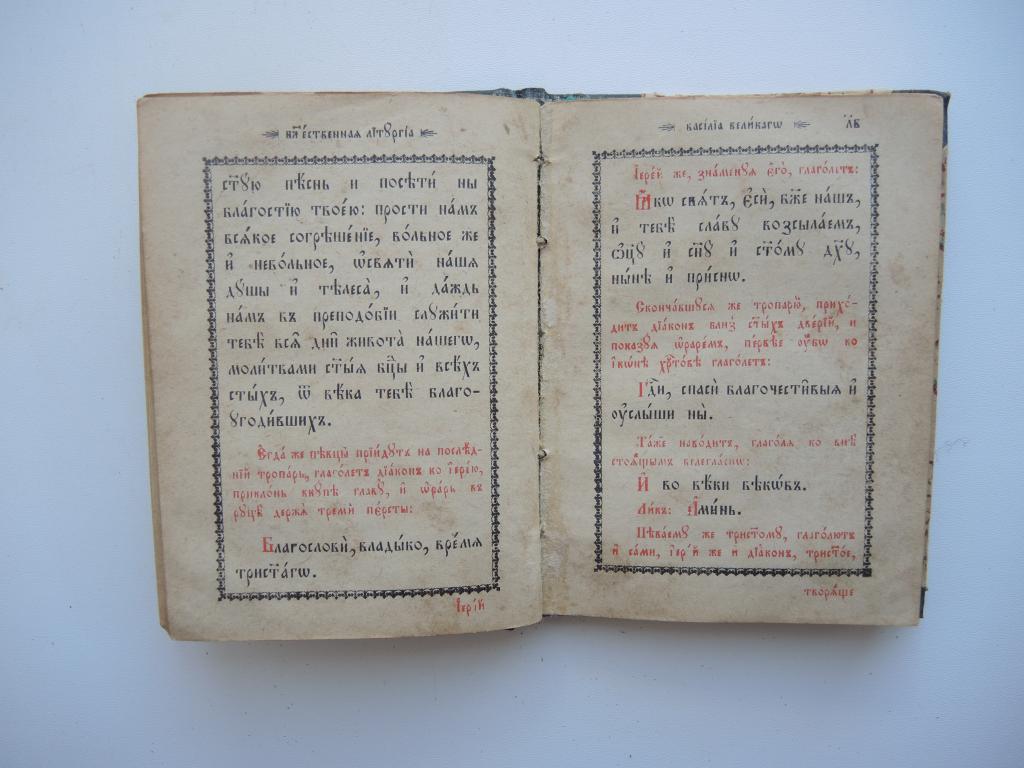 бж҃ественная лїтꙋргі́а
ст҃ꙋ́ю пѣ́снь и посѣти́ ны
бла́гостїю твое́ю: прости́ на́мъ
всѧ́кое согрѣше́нїе, во́льное же
и҆ нево́льное, ѡ҆свѧтѝ на́шѧ
дꙋ́шы и҆ тѣлеса̀, и҆ да́ждь
на́мъ въ преподо́бїи слꙋжи́ти
тебѣ̀ всѧ̑ дни̑ живота̀ на́шегѡ,
моли́твами ст҃ы́ѧ бцⷣы и҆ всѣ́хъ
ст҃ы́хъ, ѿ вѣ́ка тебѣ̀ благо-
ꙋгоди́вшихъ.
Є҆гда́ же пѣвцы̀ прїи́дꙋтъ на послѣ́д-
нїй тропа́рь, глаго́летъ дїа́конъ ко і҆ере́ю,
прикло́нь вкꙋ́пѣ главꙋ̀, и҆ ѡ҆ра́рь въ
рꙋцѣ̀ держѧ̀ тремѝ пе́рсты:
Благословѝ, влады́ко, вре́мѧ
трист҃а́гѡ.
І҆ере́й
васі́лїа вели́кагѡ
л҃в
І҆ере́й же, зна́менꙋѧ є҆го̀, глаго́летъ:
Ꙗ҆́кѡ свѧ́тъ, є҆сѝ, бж҃е на́шъ,
и҆ тебѣ̀ сла́вꙋ возсыла́емъ,
ѻ҆ц҃ꙋ̀ и҆ сн҃ꙋ и҆ ст҃о́мꙋ дх҃ꙋ,
ны́нѣ и҆ при́снѡ.
Сконча́вшꙋсѧ же тропарю̀, прихо́-
дитъ дїа́конъ бли́з̾ ст҃ы́хъ две́рїй, и
показꙋ́ѧ ѡ҆раре́мъ, пе́рвѣе ᲂу҆́бѡ ко
і҆кѡ́нѣ хрⷭ҇то́вѣ глаго́летъ:
Гдⷭ҇и, спасѝ благочести̑выѧ и҆
ᲂу҆слы́ши ны̀.
Та́же наво́дитъ, глаго́лѧ ко внѣ̀
стоѧ́щымъ велегла́снѡ:
И҆ во вѣ́ки вѣкѡ́въ.
Ли́къ: А҆ми́нь.
Пѣва́емꙋ же трист҃о́мꙋ, глаго́лютъ
и҆ са́ми, і҆ере́й же и҆ дїа́конъ, трист҃о́е,
творѧ́ще